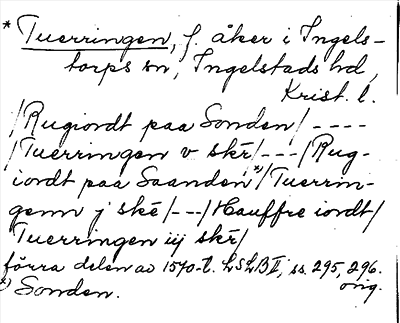 * Tuerringen, f. åker i Ingels-
torps sn, Ingelstads hd,
Krist. l.
/Rugiordt paa Sonden/ ----
/Tuerringen v skr/---/Rug-
iordt paa Saanden*)/Tuerrin-
genn j ske/---/Hauffre iordt/
Tuerringen iij skr/
förra delen av 1570-t. LSLB II, ss. 295, 296.
orig.
*) Sonden.